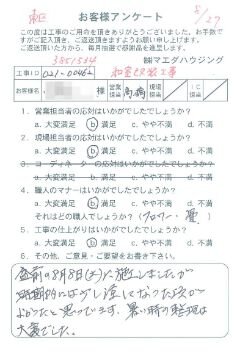 お客様アンケート
8/27
この度は工事のご用命を頂きありがとうございました。お手数で
すがご記入頂き、ご返送頂きますようお願い申し上げます。
ご返送頂いた方から、毎月抽選で感謝品を進呈します。
㈱マエダハウジング
工事ID 021-00462
お客様名 様 営業担当 高嶋 現場担当
1. 営業担当者の応対はいかがでしたでしょうか?
a. 大変満足 b 満足 c. やや不満 d. 不満
2. 現場担当者の応対はいかがでしたでしょうか?
a. 大変満足 b 満足 c. やや不満 d. 不満
3. コーディネーターの応対はいかがでしたでしょうか?
a. 大変満足 b. 満足 c. やや不満 d. 不満
4. 職人のマナーはいかがでしたでしょうか?
a. 大変満足 b 満足 c. やや不満 d. 不満
それはどの職人でしょうか?
5. 工事の仕上がりはいかがでしたでしょうか?
a. 大変満足 b 満足 c. やや不満 d. 不満
6. その他、ご意見・ご要望をお書き下さい。
8月8日(土)に施工しましたが
よかったと思っています。暑い時の
大変でした。